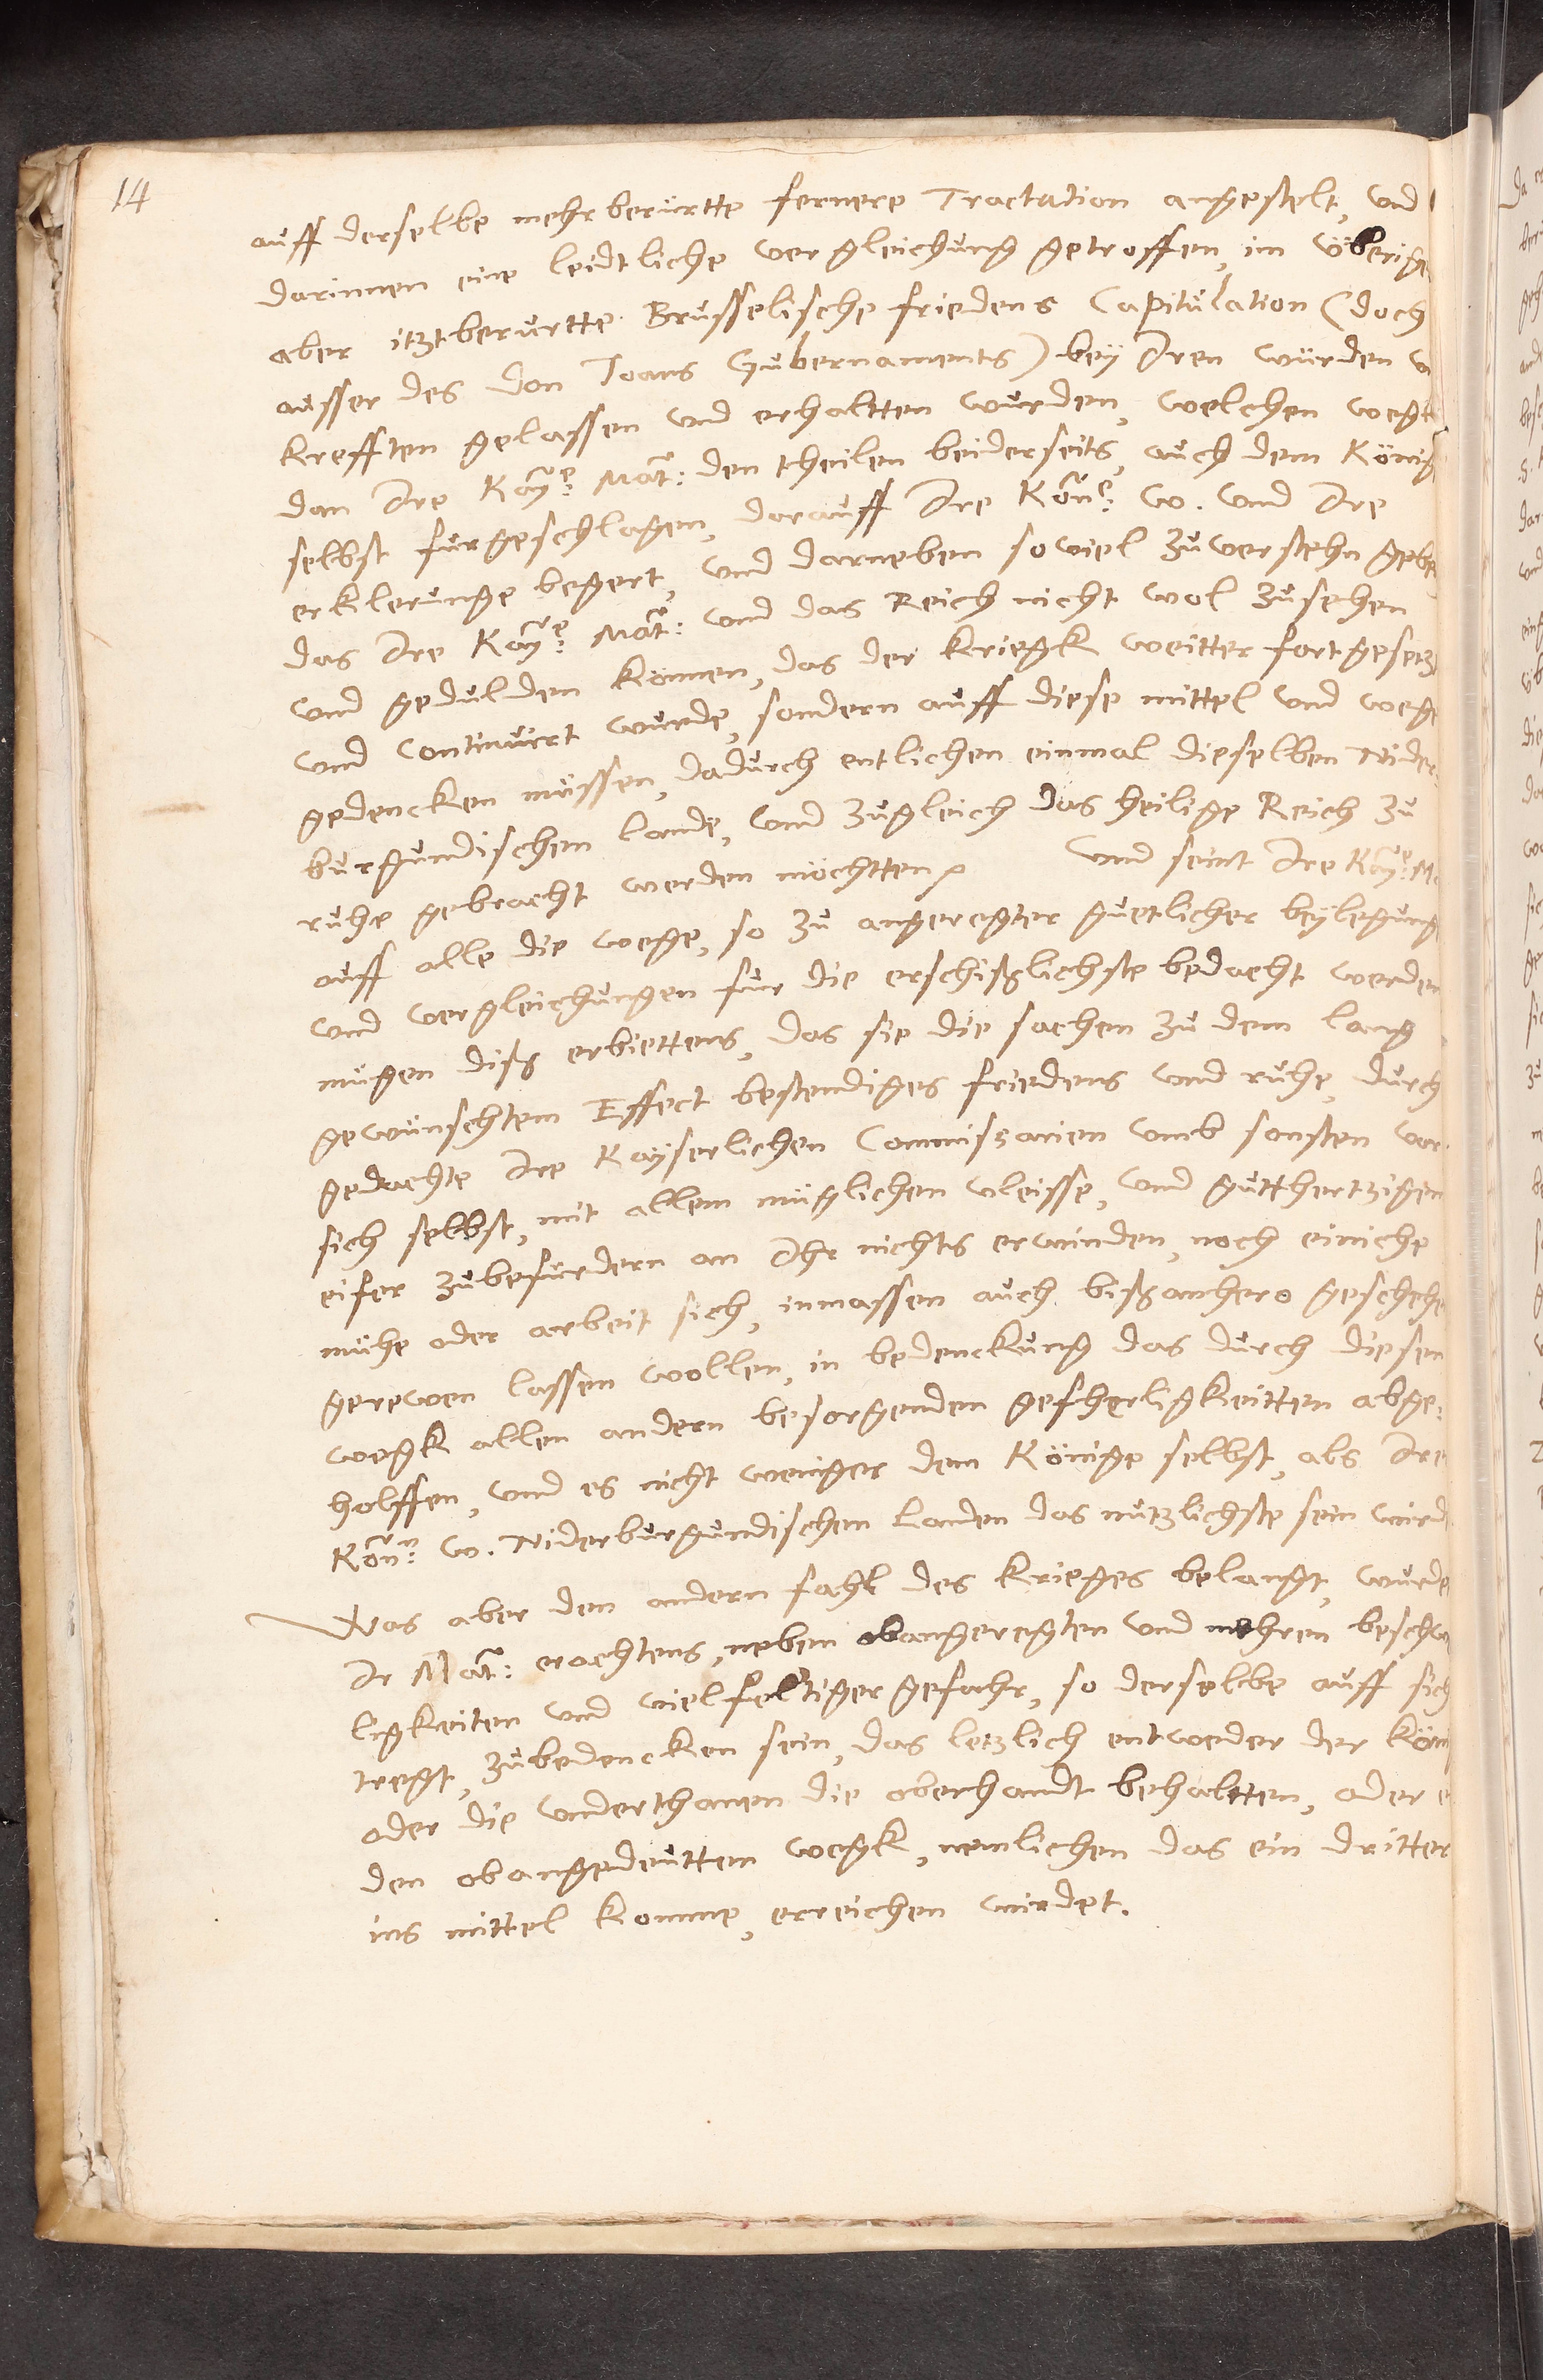 14
auff derselbe mehrberürtte fernere Tractation angestelt, vnd
darinnen eine leidtliche vergleichung getroffen, im vberige
aber itztberurtte Brüsselische friedens Capitulation (doch
ausser des Don Joans Gubernaments) bey Iren würden v
krefften gelassen vnd erhaltten würden, welchen wegk
dan Ire Kaye: Mat: den theilen beiderseits, auch dem König
selbst furgeschlagen, darauff Ire Köne: W. vnd Ire
erklerunge begert, vnd darneben soviel zuverstehn gebe
das Ire Kaye: Mat: vnd das Reich nicht wol zusehen
vnd gedulden können, das der Kriegk weitter fortgesetz
vnd Continuirt wurde, sondern auff diese mittel vnd wege
gedencken müssen, dadurch entlichen einmal dieselben Nider
burgundischen lande, vnd zugleich das heilige Reich zu
ruhe gebracht werden möchtten. Vnd seint Ire Kaye: M
auff alle die wege, so zu angeregter guetlicher beylegung
vnd vergleichungen fur die erschißlichste bedacht werden
mugen diß erbiettens, das sie die sachen zu dem lang
gewünschtem Effect bestendiges friedens vnd ruhe, durch
gedachte Ire Kayserlichen Commissarien vnnd sonsten vor
sich selbst, mit allem müglichen vleisse, vnd gutthertzigem
eifer zubefurdern an Ihr nichts erwinden, noch einiche
mühe oder arbeit sich, inmassen auch bißanhero geschehe
gerewen lassen wollen, in bedenckung das durch diesen
wegk allen andern besorgenden gefherligkeitten abge:
holffen, vnd es nicht weniger dem Könige selbst, als Ire
Könn: W. Niderburgundischen Landen das nutzlichste sein wird
Was aber den andern fahl des Krieges belangt, wurde
Ir Mat: erachtens, neben obangeregten vnd mehren beschw
ligkeiten vnd vielfeltiger gefahr, so derselbe auff sich
tregt, zubedencken sein, das letzlich entweder der Köni
oder die vnderthanen die oberhandt behaltten, oder e
den obangedeuttem wegk, nemlichen das ein dritter
ins mittel komme, erreichen wirdet.